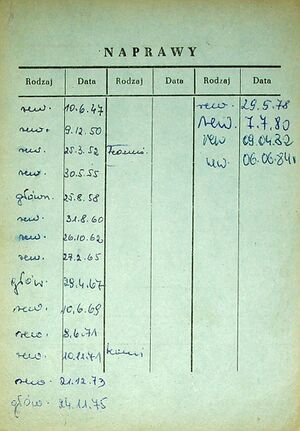 NAPRAWY
Rodzaj Data Rodzaj Data Rodzaj Data
rew. 10.6.47 rew. 29.5.78
rew. 9.12.50 rew. 7.7.80
rew. 25.3.52 rew 09.04.82
rew. 30.5.55 rew. 06.06.84
główn. 25.8.58
rew. 31.8.60
rew. 26.10.62
rew. 27.2.65
głów. 29.4.67
rew. 10.6.69
rew. 8.6.71
rew. 10.11.71
rew. 21.12.73
głów. 24.11.75